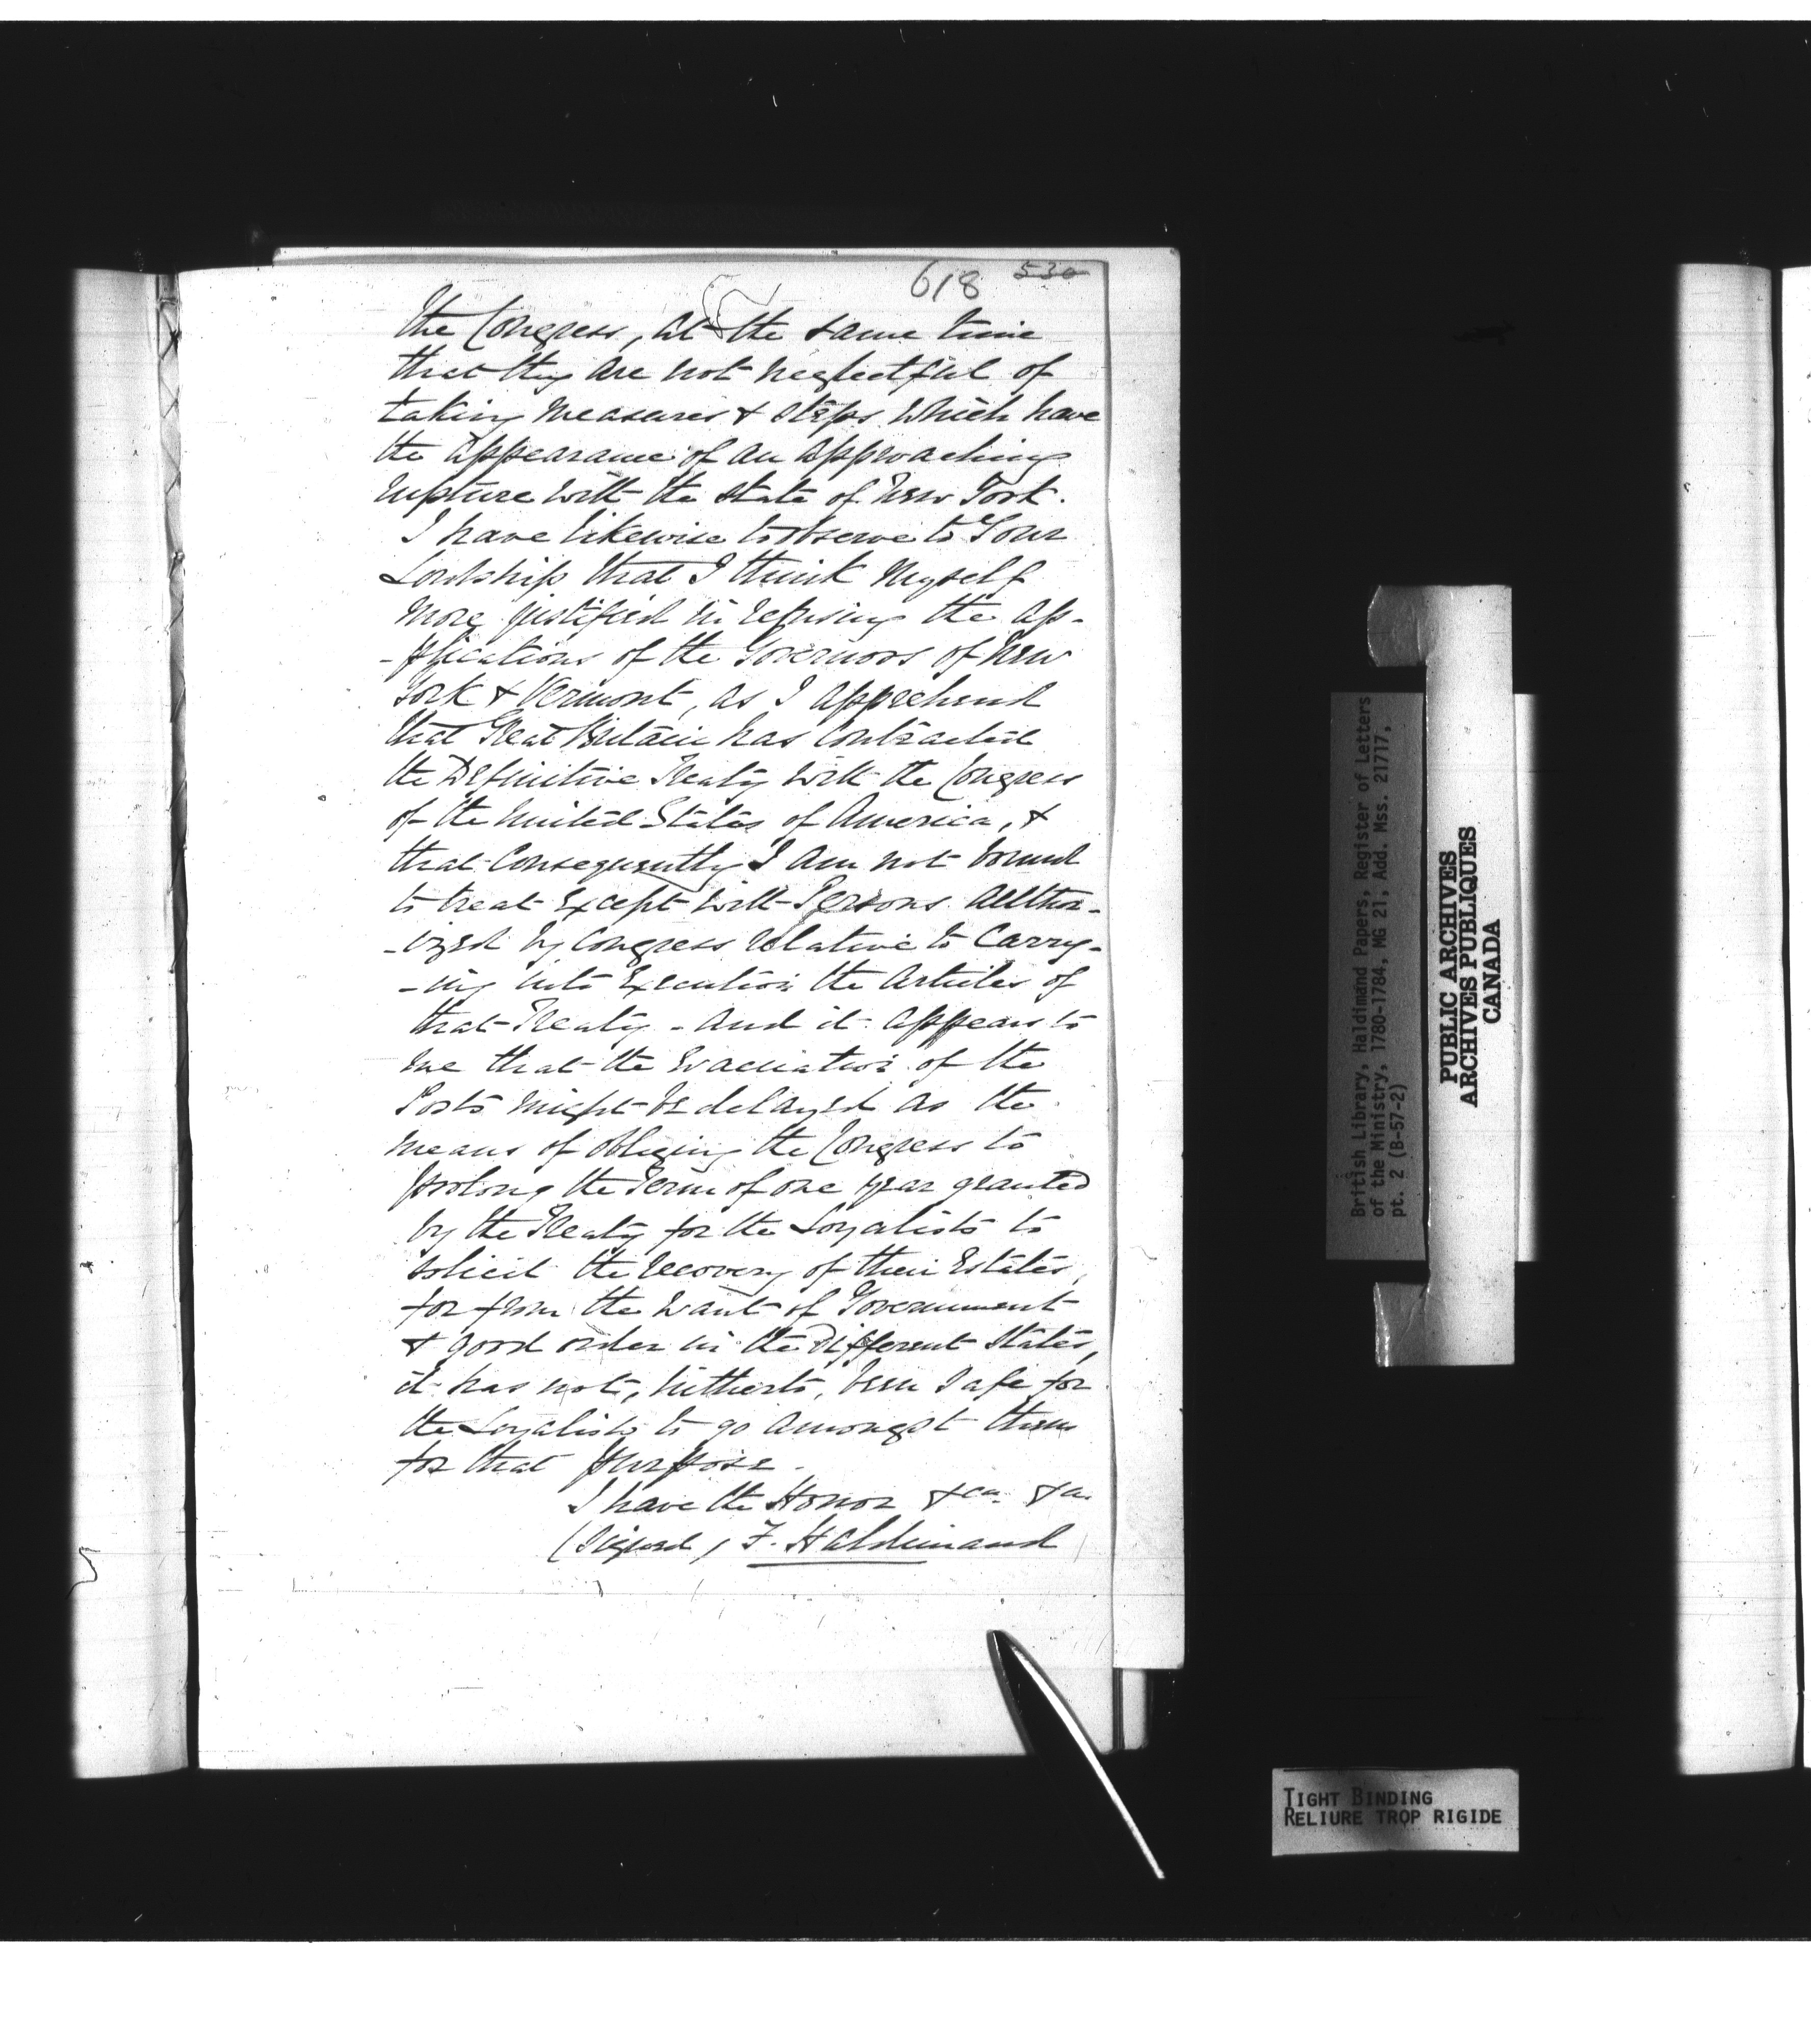 618 530
the Congress, at the same time
that they are not neglectful of
taking measures & steps which have
the appearance of an approaching
rupture with the State of New York.
I have likewise to observe to Your
Lordship that I think Myself
More justified in refusing the ap-
-plications of the Governors of New
York & Vermont, as I apprehend
that Great Britain has Contracted
the Definitive Treaty with the Congress
of the United States of America, &
that Consequently I am not bound
to treat Except with Persons Author-
-ized by Congress relative to Carry-
-ing into Execution the Articles of
that Treaty - And it appears to
me that the Evacuation of the
Posts might be delayed as the
means of obliging the Congress to
prolong the Term of one year granted
by the Treaty for the Loyalists to
solicit the recovery of their Estates,
for from the want of Government
& good order in the Different States,
it has not, hitherto, been Safe for
the Loyalists to go amongst them
for that purpose.
I have the Honor &ca. &a.
(Signed) F. Haldimand
British Library, Haldimand Papers, Register of Letters
of the Ministry, 1780-1784, MG 21, Add. Mss. 21717,
pt. 2 (B-57-2)
PUBLIC ARCHIVES
ARCHIVES PUBLIQUES
CANADA
TIGHT BINDING
RELIURE TROP RIGIDE